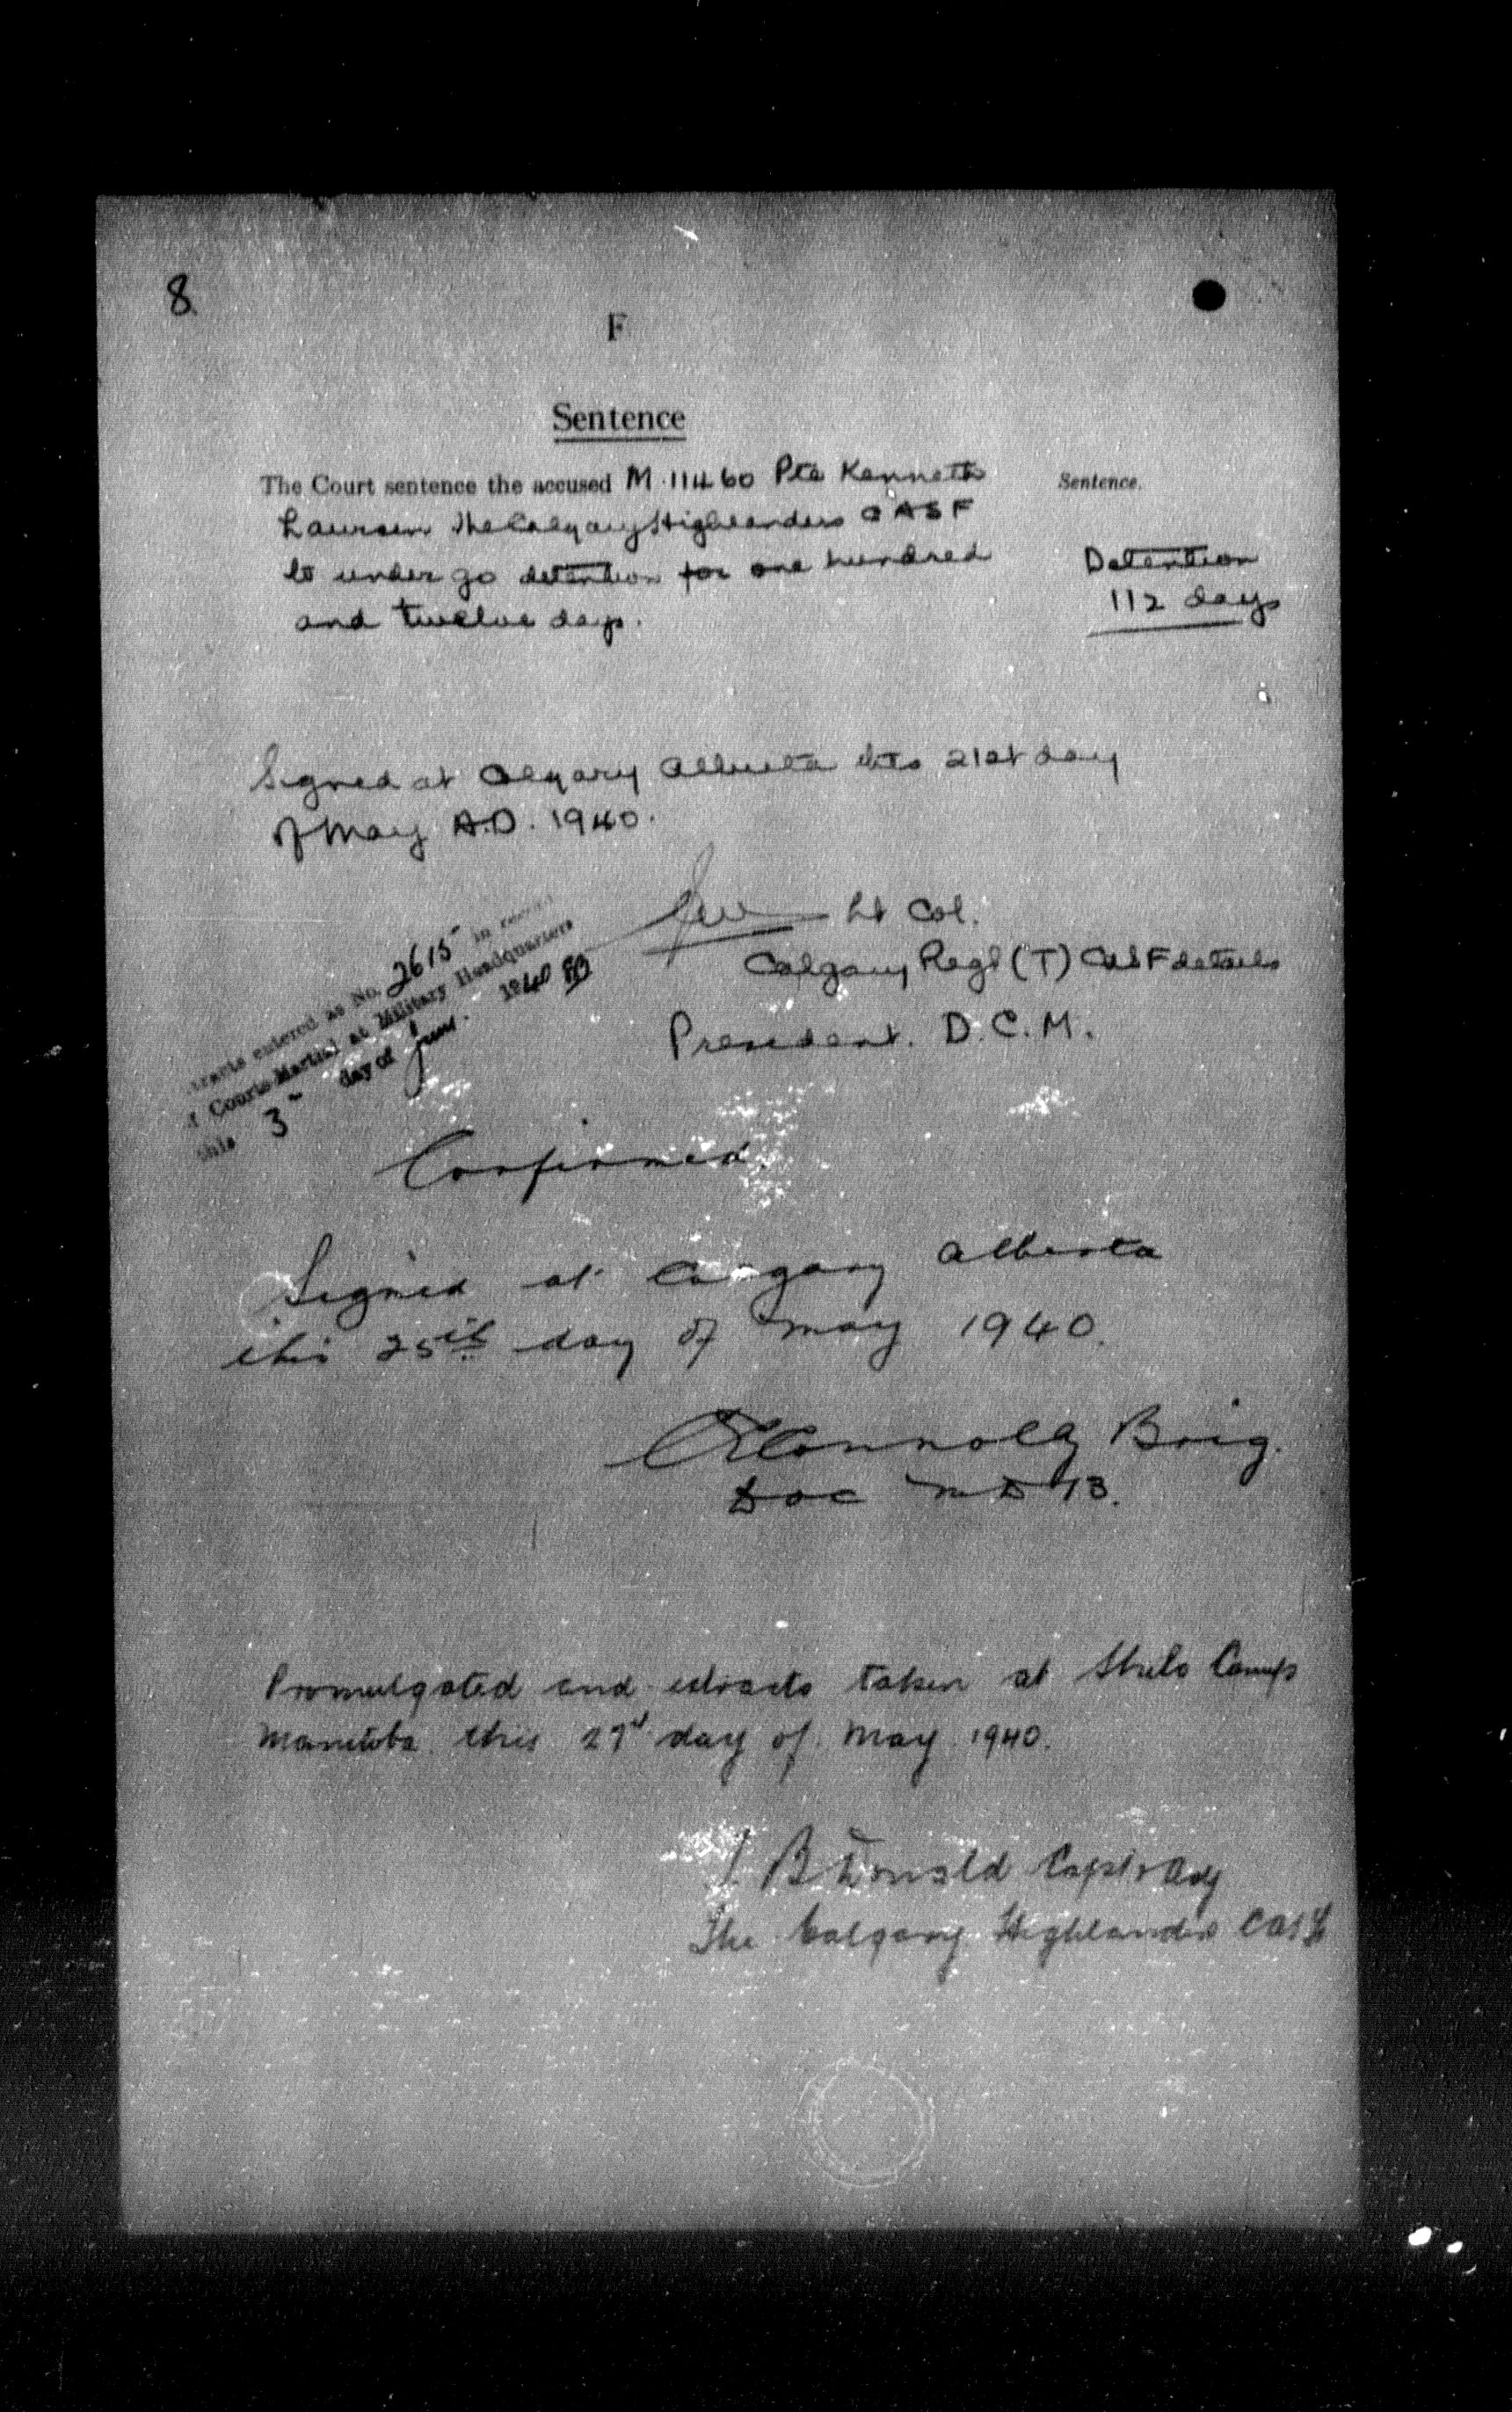 8
F
Sentence
The Court sentence the accused M.11460 Pte Kenneth
Laursen The Calgary Highlanders CASF
to undergo detention for one hundred
and twelve days.
Sentence.
Detention
112 days
Signed at Calgary Alberta this 21st day
of May A.D. 1940.
Lt Col.
Calgary Regt (T) CASF details
President. D.C.M.
entered as No. 2615 in
Courts-Martial at Military Headquarters
this 3 day of June 1940
Confirmed.
Signed at Calgary Alberta
this 25th day of May 1940.
Connolly Brig.
DOC MD 13.
Promulgated and extracts taken at Shilo Camp
Manitoba this 27 day of May 1940.
Donald Capt & Adj
The Calgary Highlanders CASF